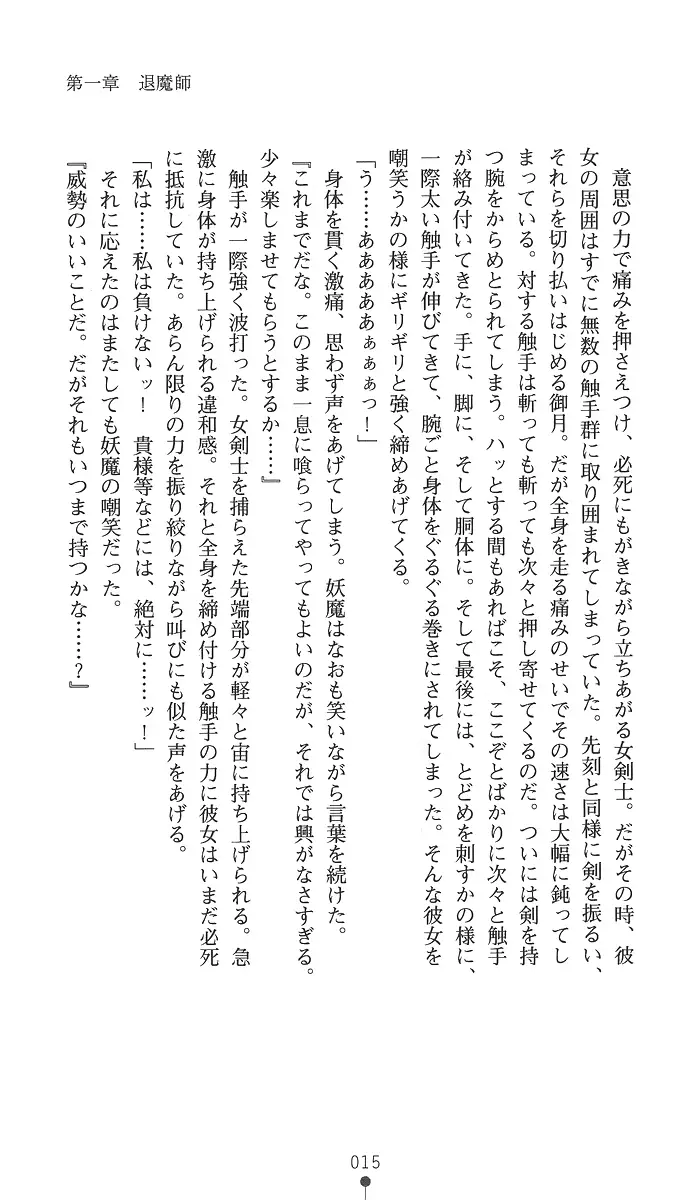 第一章　退魔師
　意思の力で痛みを押さえつけ、必死にもがきながら立ちあがる女剣士。だがその時、彼
女の周囲はすでに無数の触手群に取り囲まれてしまっていた。先刻と同様に剣を振るい、
それらを切り払いはじめる御月。だが全身を走る痛みのせいでその速さは大幅に鈍ってし
まっている。対する触手は斬っても斬っても次々と押し寄せてくるのだ。ついには剣を持
つ腕をからめとられてしまう。ハッとする間もあればこそ、ここぞとばかりに次々と触手
が絡み付いてきた。手に、脚に、そして胴体に。そして最後には、とどめを刺すかの様に、
一際太い触手が伸びてきて、腕ごと身体をぐるぐる巻きにされてしまった。そんな彼女を
嘲笑うかの様にギリギリと強く締めあげてくる。
「う……ああああぁぁぁっ！」
　身体を貫く激痛、思わず声をあげてしまう。妖魔はなおも笑いながら言葉を続けた。
『これまでだな。このまま一息に喰らってやってもよいのだが、それでは興がなさすぎる。
少々楽しませてもらうとするか……』
　触手が一際強く波打った。女剣士を捕らえた先端部分が軽々と宙に持ち上げられる。急
激に身体が持ち上げられる違和感。それと全身を締め付ける触手の力に彼女はいまだ必死
に抵抗していた。あらん限りの力を振り絞りながら叫びにも似た声をあげる。
「私は……私は負けないッ！　貴様等などには、絶対に……ッ！」
　それに応えたのはまたしても妖魔の嘲笑だった。
『威勢のいいことだ。だがそれもいつまで持つかな……？』
015